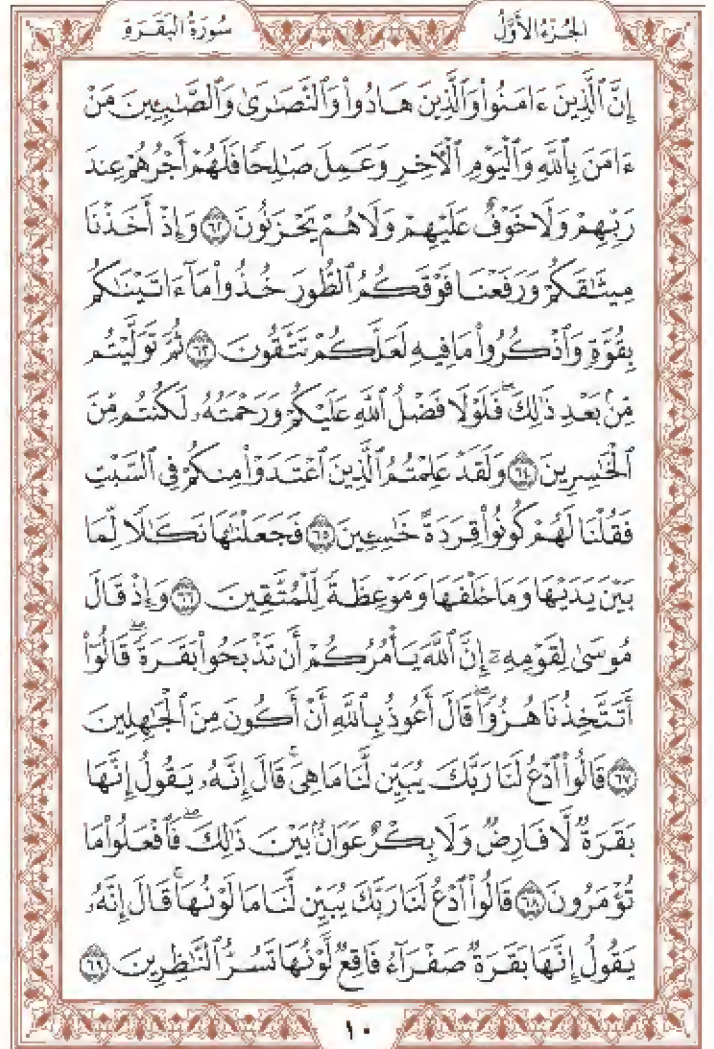 سُورَةُ الْبَقَرَةِ الجُزْءُ الأَوَّلُ
إِنَّ ٱلَّذِينَ ءَامَنُوا۟ وَٱلَّذِينَ هَادُوا۟ وَٱلنَّصَٰرَىٰ وَٱلصَّٰبِـِٔينَ مَنْ
ءَامَنَ بِٱللَّهِ وَٱلْيَوْمِ ٱلْـَٔاخِرِ وَعَمِلَ صَٰلِحًا فَلَهُمْ أَجْرُهُمْ عِندَ
رَبِّهِمْ وَلَا خَوْفٌ عَلَيْهِمْ وَلَا هُمْ يَحْزَنُونَ ٦٢ وَإِذْ أَخَذْنَا
مِيثَٰقَكُمْ وَرَفَعْنَا فَوْقَكُمُ ٱلطُّورَ خُذُوا۟ مَآ ءَاتَيْنَٰكُم
بِقُوَّةٍ وَٱذْكُرُوا۟ مَا فِيهِ لَعَلَّكُمْ تَتَّقُونَ ٦٣ ثُمَّ تَوَلَّيْتُم
مِّنۢ بَعْدِ ذَٰلِكَ ۖ فَلَوْلَا فَضْلُ ٱللَّهِ عَلَيْكُمْ وَرَحْمَتُهُۥ لَكُنتُم مِّنَ
ٱلْخَٰسِرِينَ ٦٤ وَلَقَدْ عَلِمْتُمُ ٱلَّذِينَ ٱعْتَدَوْا۟ مِنكُمْ فِى ٱلسَّبْتِ
فَقُلْنَا لَهُمْ كُونُوا۟ قِرَدَةً خَٰسِـِٔينَ ٦٥ فَجَعَلْنَٰهَا نَكَٰلًا لِّمَا
بَيْنَ يَدَيْهَا وَمَا خَلْفَهَا وَمَوْعِظَةً لِّلْمُتَّقِينَ ٦٦ وَإِذْ قَالَ
مُوسَىٰ لِقَوْمِهِۦٓ إِنَّ ٱللَّهَ يَأْمُرُكُمْ أَن تَذْبَحُوا۟ بَقَرَةً ۖ قَالُوٓا۟
أَتَتَّخِذُنَا هُزُوًا ۖ قَالَ أَعُوذُ بِٱللَّهِ أَنْ أَكُونَ مِنَ ٱلْجَٰهِلِينَ
٦٧ قَالُوا۟ ٱدْعُ لَنَا رَبَّكَ يُبَيِّن لَّنَا مَا هِىَ ۚ قَالَ إِنَّهُۥ يَقُولُ إِنَّهَا
بَقَرَةٌ لَّا فَارِضٌ وَلَا بِكْرٌ عَوَانٌۢ بَيْنَ ذَٰلِكَ ۖ فَٱفْعَلُوا۟ مَا
تُؤْمَرُونَ ٦٨ قَالُوا۟ ٱدْعُ لَنَا رَبَّكَ يُبَيِّن لَّنَا مَا لَوْنُهَا ۚ قَالَ إِنَّهُۥ
يَقُولُ إِنَّهَا بَقَرَةٌ صَفْرَآءُ فَاقِعٌ لَّوْنُهَا تَسُرُّ ٱلنَّٰظِرِينَ ٦٩
١٠